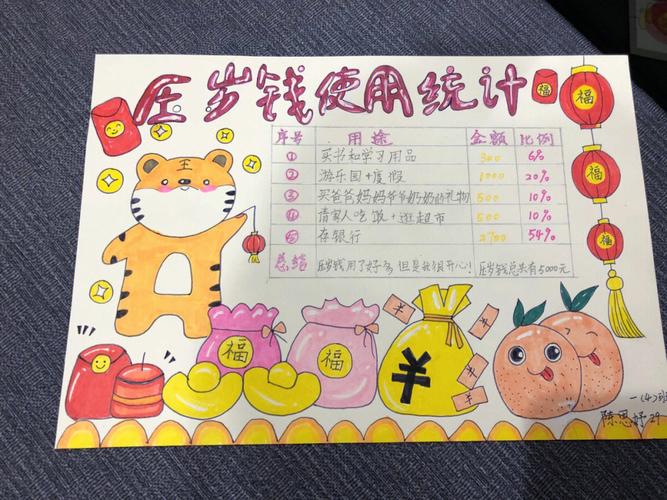 压岁钱使用统计
序号 用途 金额 比例
① 买书和学习用品 300 6%
② 游乐园+度假 1000 20%
③ 买爸爸妈妈爷爷奶奶的礼物 500 10%
④ 请家人吃饭+逛超市 500 10%
⑤ 存银行 2700 54%
总结 压岁钱用了好多,但是我很开心! 压岁钱总共有5000元
福
福
福
福
福
王
¥
¥
¥
¥
¥
一(4)班
陈思妤 29